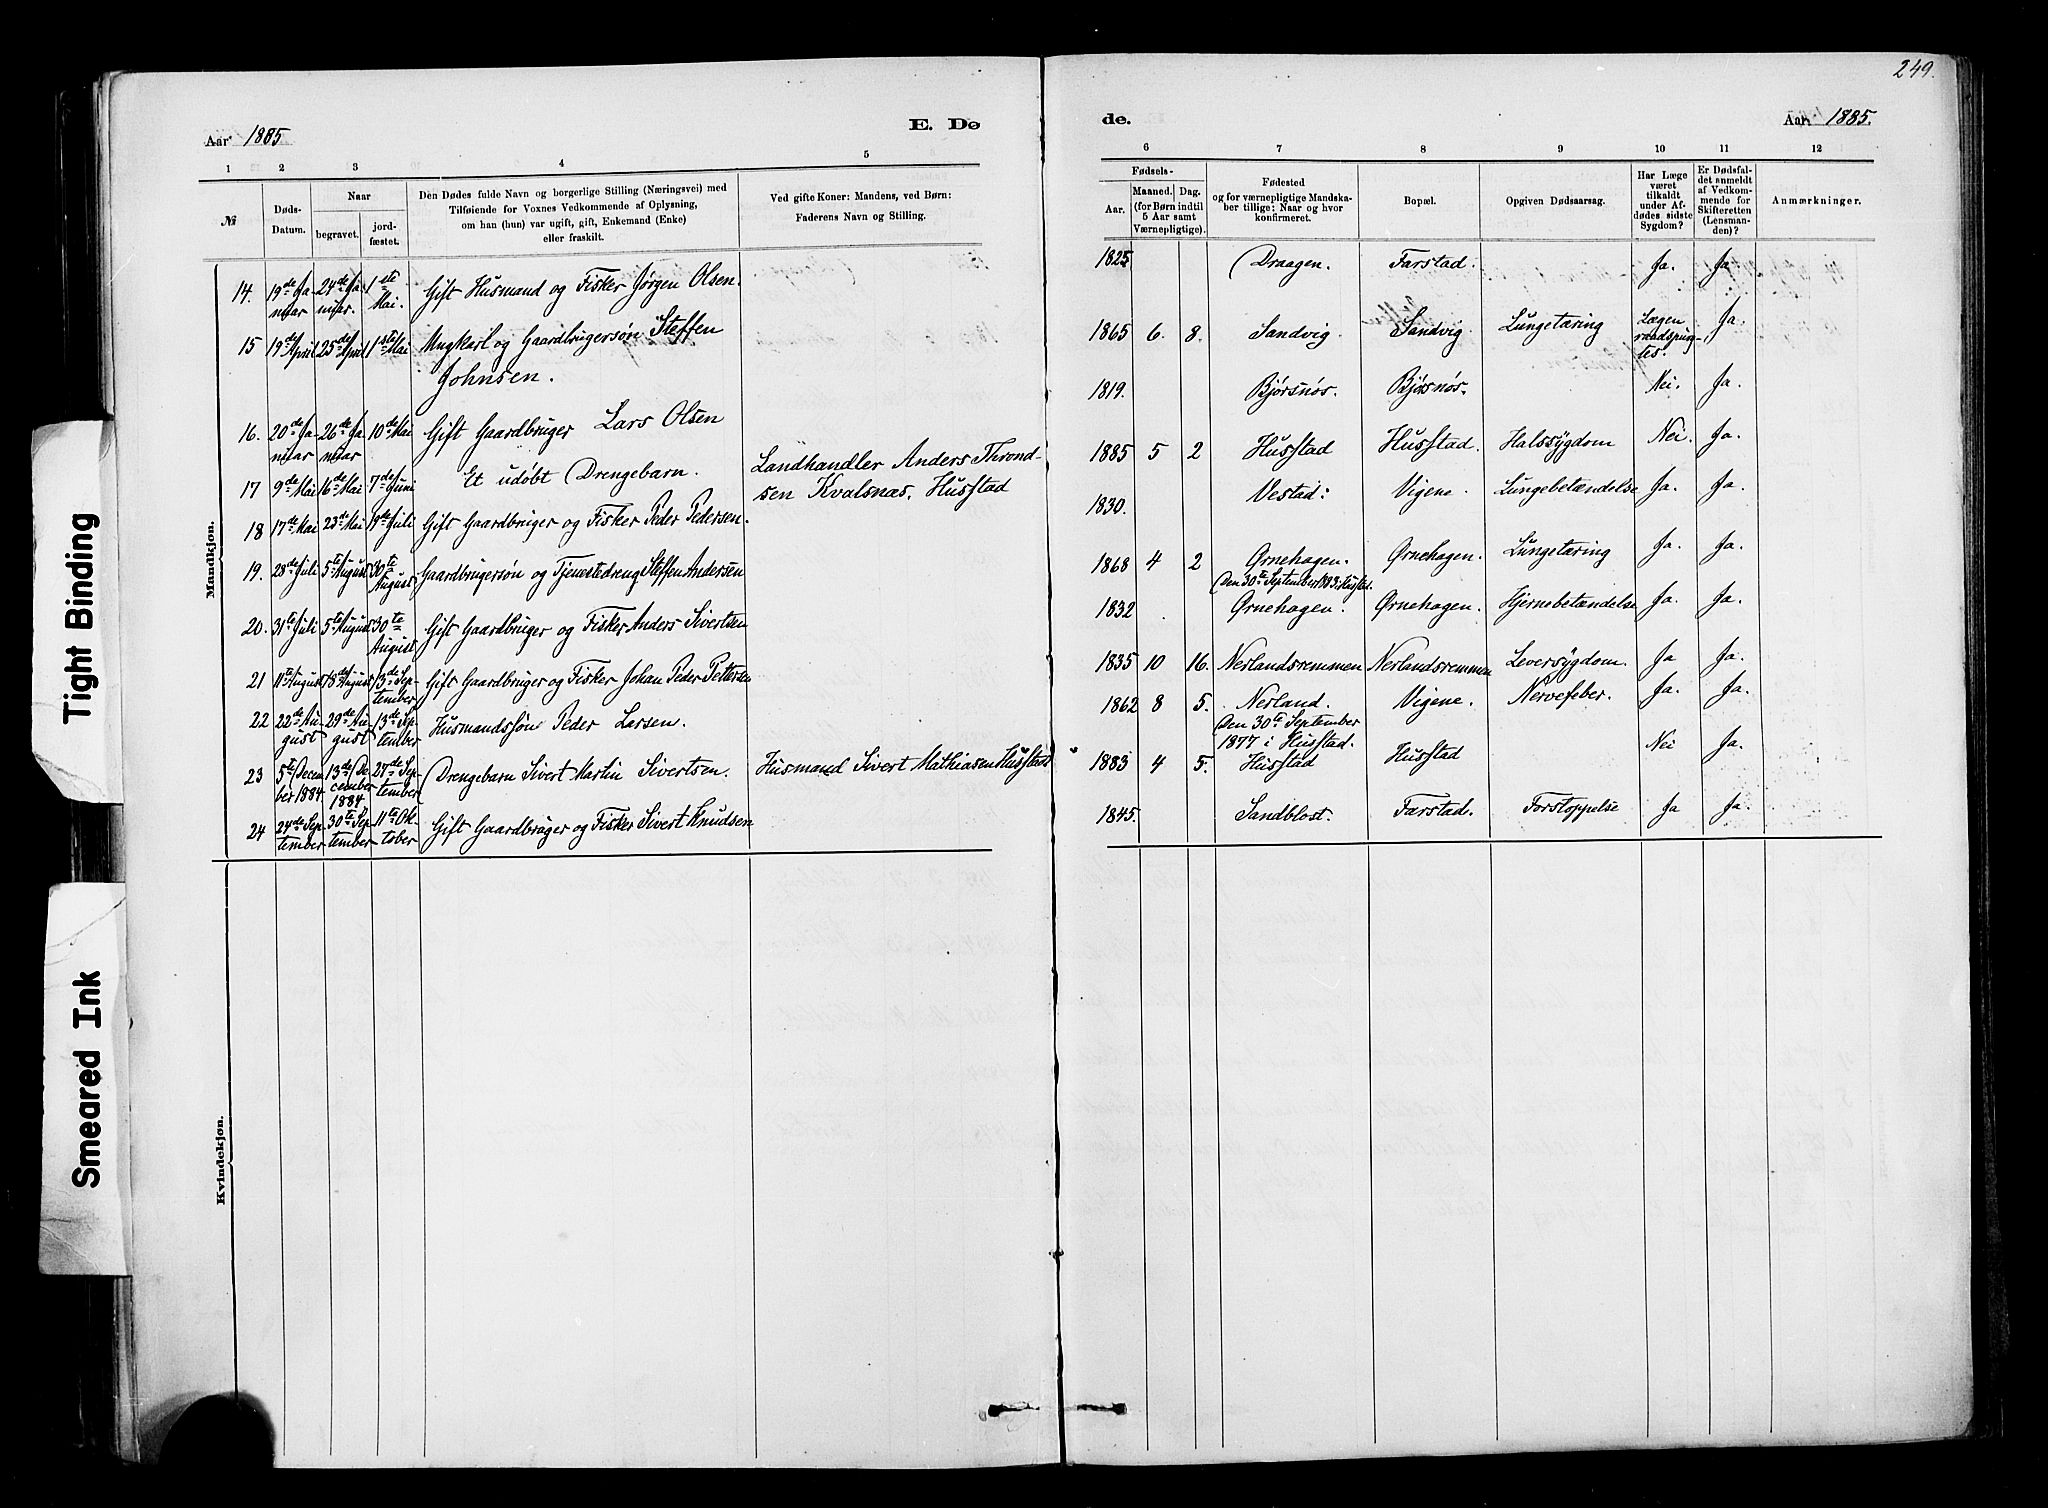 249.
Aar 1885
E. Dø
de.
Aar. 1885.
1 2 3 4 5
6 7 8 9 10 11 12
№
Døds-
Datum.
Naar
begravet.
jord-
fæstet.
Den Dødes fulde Navn og borgerlige Stilling (Næringsvei) med
Tilføiende for Voxnes Vedkommende af Oplysning,
om han (hun) var ugift, gift, Enkemand (Enke)
eller fraskilt.
Ved gifte Koner: Mandens, ved Børn:
Faderens Navn og Stilling.
Fødsels-
Aar.
Maaned. Dag.
(for Børn indtil
5 Aar samt
Værnepligtige).
Fødested
og for værnepligtige Mandska-
ber tillige: Naar og hvor
konfirmeret.
Bopæl.
Opgiven Dødsaarsag.
Har Læge
været
tilkaldt
under Af-
dødes sidste
Sygdom?
Er Dødsfal-
det anmeldt
af Vedkom-
mende for
Skifteretten
(Lensman-
den)?
Anmærkninger.
Mandkjøn.
14. 19de Ja- 24de Ja- 1ste Gift Husmand og Fisker Jørgen Olsen. 1825 Draagen. Farstad. Ja. Ja.
nuar nuar. Mai.
15 19de April 25de April 1ste Mai Ungkarl og Gaardbrugersøn Steffen 1865 6. 8. Sandvig. Sandvig Lungetæring Lægen Ja.
Johnsen. raadspurg-
tes.
16. 20de Ja- 26de Ja 10de Mai Gift Gaardbruger Lars Olsen 1819. Bjørsnøs. Bjørsnøs. Nei. Ja.
nuar nuar
17 9de Mai 16de Mai 7de Juni Et udøbt Drengebarn. Landhandler Anders Thrond- 1885 5 2 Husstad Husstad. Halssygdom Nei. Ja.
sen Kvalsnæs. Husstad
18 17de Mai 23de Mai 19de Juli Gift Gaardbruger og Fisker Peder Pedersen. 1830. Vestad: Vigene. Lungebetændelse Ja. Ja.
19. 28de Juli 5te August 30te Gaardbrugersøn og Tjenestedreng Steffen Andersen 1868 4 2 Ørnehagen. Ørnehagen. Lungetæring Ja. Ja.
August Den 30te September
20. 31te Juli 5te August 30te Gift Gaardbruger og Fisker Anders Sivertsen 1832 Ørnehagen. Ørnehagen. Hjernebetændelse Ja. Ja.
August
21 11te August 18de August 13de Sep- Gift Gaardbruger og Fisker Johan Peder Pettersen 1835 10 16. Nerlandsremmen Nerlandsremmen Leversygdom. Ja Ja.
tember
22 22de Au- 29de Au- 13de Sep- Husmandssøn Peder Larsen. 1862 8 5. Nerland. Vigene. Nervefeber. Ja. Ja.
gust gust tember Den 30te September
1877 i Husstad.
23 5te Decem 13de De 27de Sep- Drengebarn Sivert Martin Sivertsen. Husmand Sivert Mathiasen Husstad 1883 4 5. Husstad Husstad Nei Ja.
ber 1884 cember tember
1884
24 24de Sep- 30te Sep- 11te Ok- Gift Gaardbruger og Fisker Sivert Knudsen 1845. Sandblost. Farstad. Forstoppelse Ja Ja.
tember tember tober
Kvindekjøn.
Tight Binding
Smeared Ink